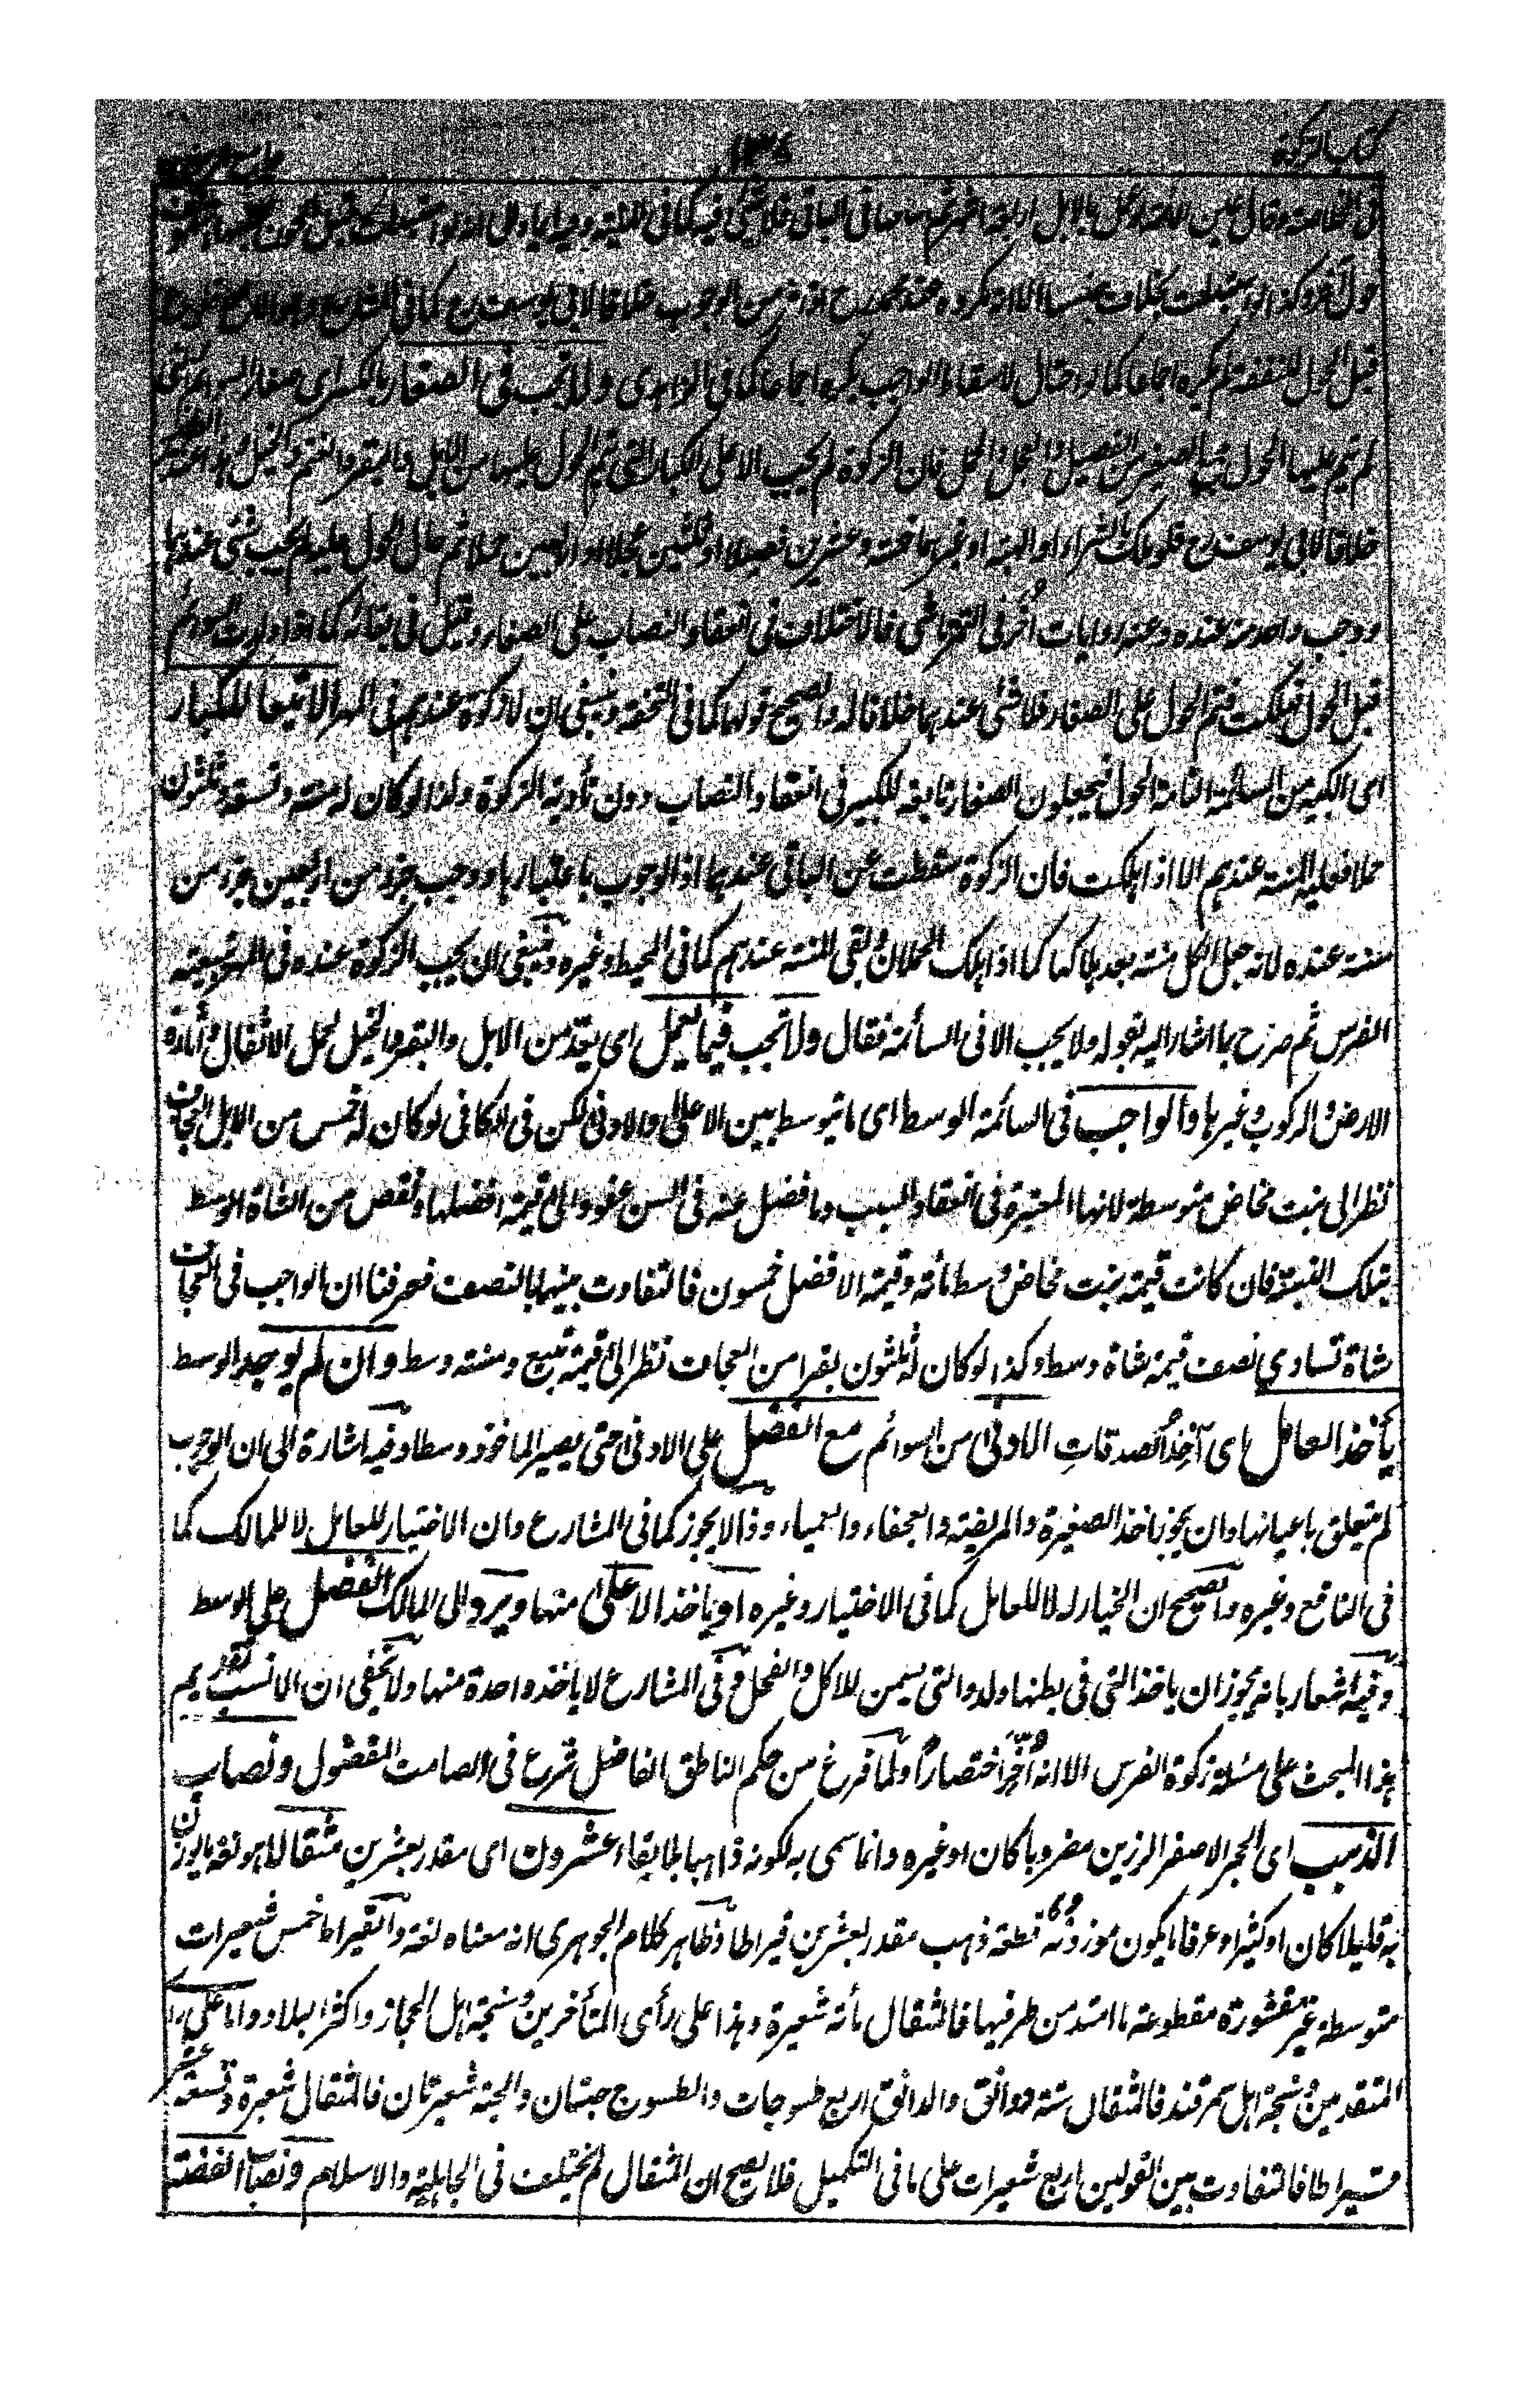 كتاب الزكوة
قبل الحول للنفقة لم يكره اجماعا كما لو احتال لاسقاط الواجب يكره اجماعا كما فى الزاهدى ولا تجب فى الصغار بالكسر اى صغار السوائم التى
لم يتم عليها الحول فان الزكوة لم يجب الا على الكبار التى تم الحول عليها من الابل والبقر والغنم والخيل
خلافا لابى يوسف رح فلو ملك بالشراء او الهبة او غيرهما خمسة وعشرين فصيلا او ثلثين عجلا او اربعين حملا ثم حال الحول عليه لم يجب شئ عندهما
ووجب واحد منه عنده وعنه روايات اُخر فى التمرتاشى فالاختلاف فى انعقاد النصاب على الصغار وقيل فى بقائه كما اذا ولدت السوائم
قبل الحول فهلكت فتم الحول على الصغار فلا شئ عندهما خلافا له والصحيح قولهما كما فى التحفة وينبغى ان لا زكوة عندهم فى المهر الا تبعا للكبار
اى الكبيرة من السائمة التامة الحول فيجعلون الصغار تابعة للكبير فى انعقاد النصاب دون تأدية الزكوة ولذا لو كان له مسنة وتسعة وثلثون
حملا فعليه المسنة عندهم الا اذا هلكت فان الزكوة سقطت عن الباقى عندهما اذ الوجوب باعتبارها ووجب جزء من اربعين جزء من
مسنة عنده لانه جعل الكل مسنة بعد هلاكها كما اذا هلك الحملان بقى المسنة عندهم كما فى المحيط وغيره وينبغى ان يجب الزكوة عنده فى المهر بتبعية
الفرس ثم صرح بما اشار اليه بقوله ولا يجب الا فى السائمة فقال ولا تجب فيما يعمل اى يعد من الابل والبقر والخيل لحمل الاثقال واثارة
الارض والركوب وغيرها والواجب فى السائمة الوسط اى ما يتوسط بين الاعلى والادنى لكن فى الكافى لو كان له خمس من الابل العجاف
نظر الى بنت مخاض متوسطة لانها المعتبرة فى انعقاد السبب وما فضل عنه فى السن عفو والى قيمة افضلها ونقص من الشاة الوسط
بتلك النسبة فان كانت قيمة بنت مخاض وسط مأة وقيمة الافضل خمسون فالتفاوت بينهما بالنصف فعرفنا ان الواجب فى العجاف
شاة تساوى نصف قيمة شاة وسط وكذا لو كان له ثلثون بقرا من العجاف نظر الى قيمة تبيع ومسنة وسط وان لم يوجد الوسط
يأخذ العامل اى آخِذُ الصدقاتِ الادنى من السوائم مع الفضل على الادنى حتى يصير الماخوذ وسطا وفيه اشارة الى ان الوجوب
لم يتعلق باعيانها وان يجوز اخذ الصغيرة والمريضة والعجفاء والعمياء وذا لا يجوز كما فى المشارع وان الاختيار للعامل لا للمالك كما
فى النافع وغيره والصحيح ان الخيار له لا للعامل كما فى الاختيار وغيره او يأخذ الاعلى منها ويرد الى المالك الفضل على الوسط
وفيه اشعار بانه يجوز ان ياخذ التى فى بطنها ولد والتى يسمن للاكل والفحل وفى المشارع لا ياخذ واحدة منها ولا يخفى ان الانسب تقديم
هذا المبحث على مسئلة زكوة الفرس الا انه اُخّر اختصاراً ولما فرغ من حكم الناطق الفاضل شرع فى الصامت المفضول ونصاب
الذهب اى الحجر الاصفر الرزين مضروبا كان او غيره وانما سمى به لكونه ذاهبا بلا بقاء عشرون اى مقدر بعشرين مثقالا هو لغة ما يوزن
به قليلا كان او كثيرا وعرفا ما يكون موزونه قطعة ذهب مقدر بعشرين قيراطا وظاهر كلام الجوهرى انه معناه لغة والقيراط خمس شعيرات
متوسطة غير مقشورة مقطوعة ما امتد من طرفيها فالمثقال مأة شعيرة وهذا على رأى المتأخرين وسنجة اهل الحجاز واكثر البلاد واما على رأى
المتقدمين وسنجة اهل سمرقند فالمثقال ستة دوانق والدانق اربع طسوجات والطسوج حبتان والحبة شعيرتان فالمثقال شعيرة وتسعة عشر
قيراطا فالتفاوت بين القولين اربع شعيرات على ما فى التكميل فلا يصح ان المثقال لم يختلف فى الجاهلية والاسلام ونصاب الفضة